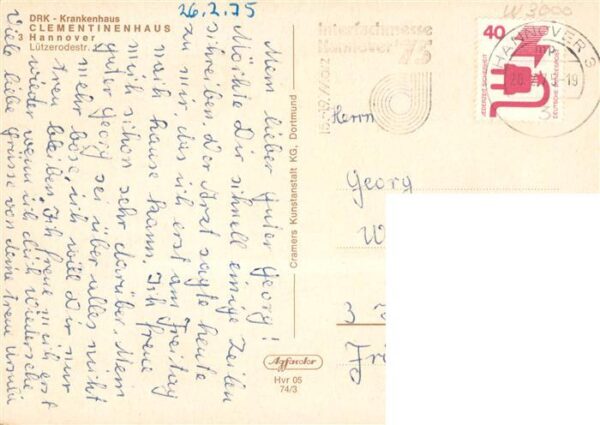 26.2.75
DRK - Krankenhaus
CLEMENTINENHAUS
3 Hannover
Lützerodestr.
Mein lieber guter Georg!
Möchte Dir schnell einige Zeilen
schreiben. Der Arzt sagte heute
zu mir, das ich erst am Freitag
nach hause kann. Ich freue
mich schon sehr darüber. Mein
guter Georg sei über alles nicht
mehr böse, ich will Dir nur
treu bleiben. Ich freue mich erst
wieder wenn ich dich wiedersehe
Viele liebe Grüsse von deine treue
Cramers Kunstanstalt KG, Dortmund
Agfacolor
Hvr 05
74/3
interfaschmesse
Hannover '75
HANNOVER 3
-19
3
40
JEDERZEIT SICHERHEIT
DEUTSCHE BUNDESPOST
W 3000
Herrn
Georg
W
3